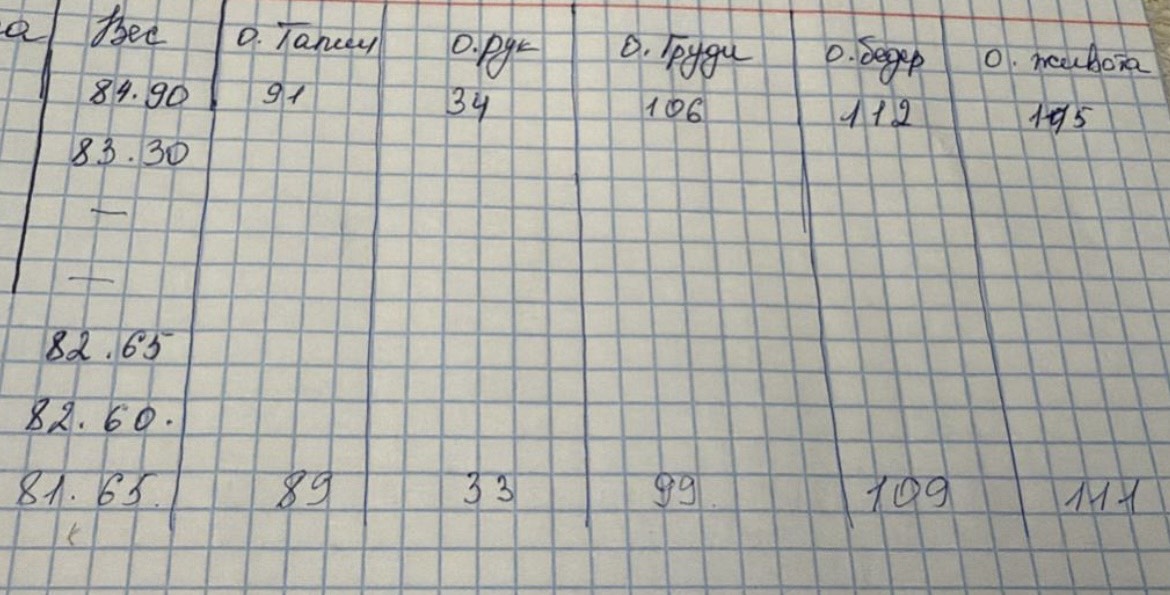 а Вес О. Талии О.рук О. Груди О.бедер О. живота
84.90 91 34 106 112
83.30
—
—
82.65
82.60.
81.65. 89 33 99. 109 111